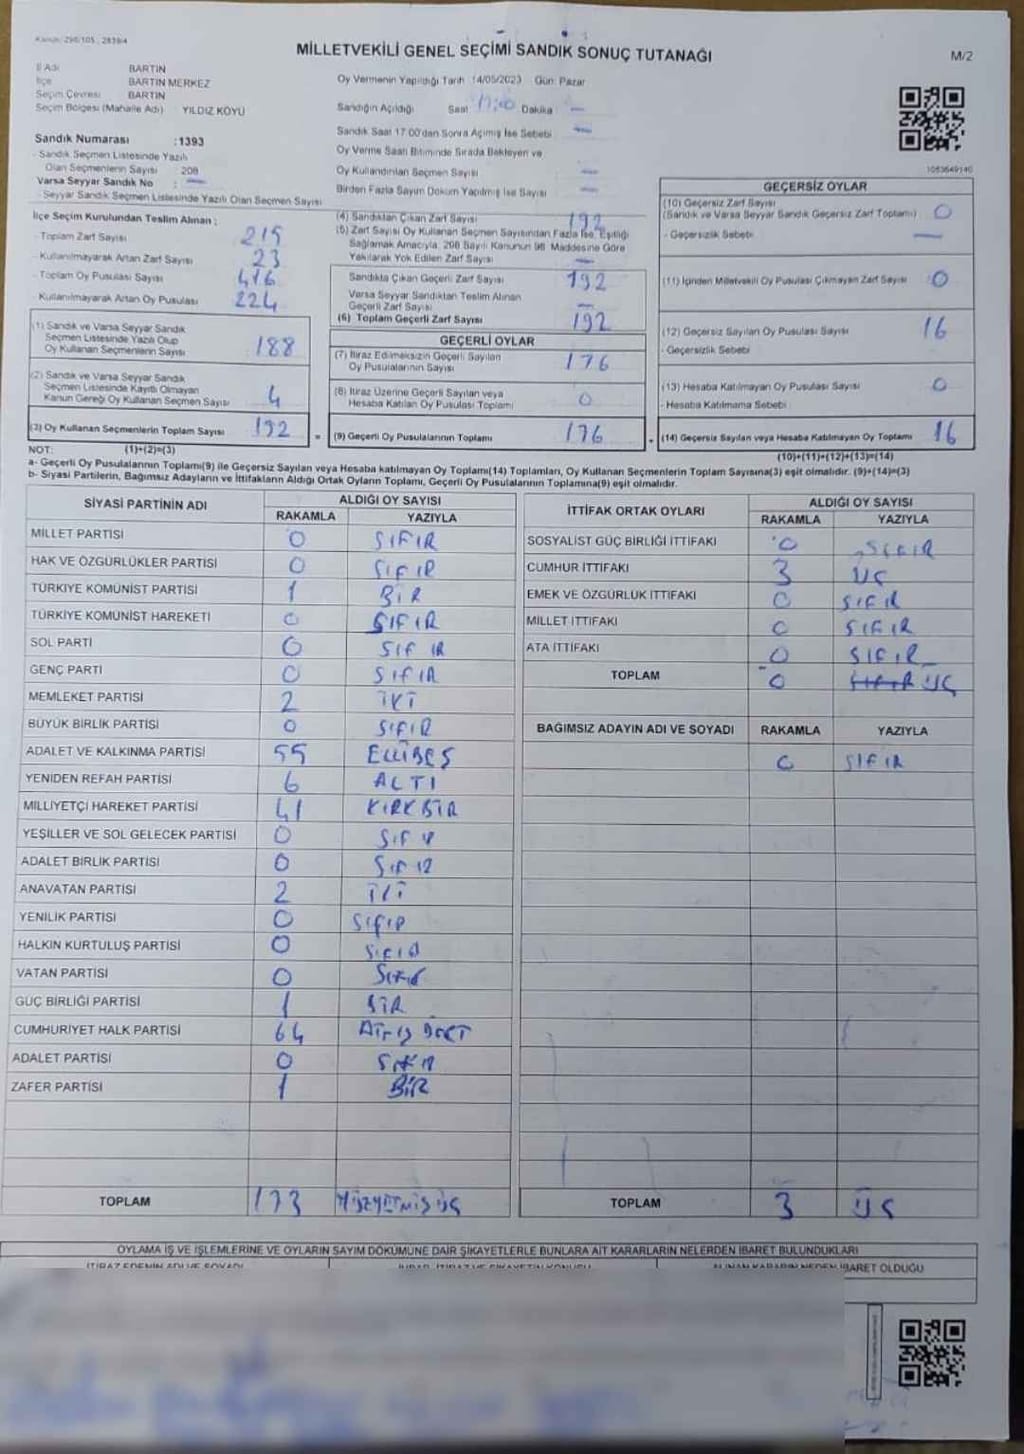 Kanun: 298/105 ; 2839/4
MİLLETVEKİLİ GENEL SEÇİMİ SANDIK SONUÇ TUTANAĞI
M/2
İl Adı BARTIN
İlçe BARTIN MERKEZ
Seçim Çevresi BARTIN
Seçim Bölgesi (Mahalle Adı) YILDIZ KÖYÜ
Sandık Numarası :1393
- Sandık Seçmen Listesinde Yazılı
Olan Seçmenlerin Sayısı 208
Varsa Seyyar Sandık No : -
- Seyyar Sandık Seçmen Listesinde Yazılı Olan Seçmen Sayısı
Oy Vermenin Yapıldığı Tarih 14/05/2023 Gün: Pazar
Sandığın Açıldığı Saat 17:00 Dakika -
Sandık Saat 17.00'dan Sonra Açılmış İse Sebebi -
Oy Verme Saati Bitiminde Sırada Bekleyen ve
Oy Kullandırılan Seçmen Sayısı -
Birden Fazla Sayım Döküm Yapılmış İse Sayısı -
1083649140
İlçe Seçim Kurulundan Teslim Alınan ;
- Toplam Zarf Sayısı 215
- Kullanılmayarak Artan Zarf Sayısı 23
- Toplam Oy Pusulası Sayısı 416
- Kullanılmayarak Artan Oy Pusulası 224
(1) Sandık ve Varsa Seyyar Sandık
Seçmen Listesinde Yazılı Olup
Oy Kullanan Seçmenlerin Sayısı 188
(2) Sandık ve Varsa Seyyar Sandık
Seçmen Listesinde Kayıtlı Olmayan
Kanun Gereği Oy Kullanan Seçmen Sayısı 4
(3) Oy Kullanan Seçmenlerin Toplam Sayısı 192
(4) Sandıktan Çıkan Zarf Sayısı 192
(5) Zarf Sayısı Oy Kullanan Seçmen Sayısından Fazla İse, Eşitliği
Sağlamak Amacıyla, 298 Sayılı Kanunun 98. Maddesine Göre
Yakılarak Yok Edilen Zarf Sayısı -
Sandıkta Çıkan Geçerli Zarf Sayısı 192
Varsa Seyyar Sandıktan Teslim Alınan
Geçerli Zarf Sayısı -
(6) Toplam Geçerli Zarf Sayısı 192
GEÇERLİ OYLAR
(7) İtiraz Edilmeksizin Geçerli Sayılan
Oy Pusulalarının Sayısı 176
(8) İtiraz Üzerine Geçerli Sayılan veya
Hesaba Katılan Oy Pusulası Toplamı 0
(9) Geçerli Oy Pusulalarının Toplamı 176
GEÇERSİZ OYLAR
(10) Geçersiz Zarf Sayısı
(Sandık ve Varsa Seyyar Sandık Geçersiz Zarf Toplamı) 0
- Geçersizlik Sebebi -
(11) İçinden Milletvekili Oy Pusulası Çıkmayan Zarf Sayısı 0
(12) Geçersiz Sayılan Oy Pusulası Sayısı 16
- Geçersizlik Sebebi
(13) Hesaba Katılmayan Oy Pusulası Sayısı 0
- Hesaba Katılmama Sebebi
(14) Geçersiz Sayılan veya Hesaba Katılmayan Oy Toplamı 16
NOT: (1)+(2)=(3)
(10)+(11)+(12)+(13)=(14)
a- Geçerli Oy Pusulalarının Toplamı(9) ile Geçersiz Sayılan veya Hesaba katılmayan Oy Toplamı(14) Toplamları, Oy Kullanan Seçmenlerin Toplam Sayısına(3) eşit olmalıdır. (9)+(14)=(3)
b- Siyasi Partilerin, Bağımsız Adayların ve İttifakların Aldığı Ortak Oyların Toplamı, Geçerli Oy Pusulalarının Toplamına(9) eşit olmalıdır.
SİYASİ PARTİNİN ADI ALDIĞI OY SAYISI
RAKAMLA YAZIYLA
MİLLET PARTİSİ 0 SIFIR
HAK VE ÖZGÜRLÜKLER PARTİSİ 0 SIFIR
TÜRKİYE KOMÜNİST PARTİSİ 1 BİR
TÜRKİYE KOMÜNİST HAREKETİ 0 SIFIR
SOL PARTİ 0 SIFIR
GENÇ PARTİ 0 SIFIR
MEMLEKET PARTİSİ 2 İKİ
BÜYÜK BİRLİK PARTİSİ 0 SIFIR
ADALET VE KALKINMA PARTİSİ 55 ELLİBEŞ
YENİDEN REFAH PARTİSİ 6 ALTI
MİLLİYETÇİ HAREKET PARTİSİ 41 KIRKBİR
YEŞİLLER VE SOL GELECEK PARTİSİ 0 SIFIR
ADALET BİRLİK PARTİSİ 0 SIFIR
ANAVATAN PARTİSİ 2 İKİ
YENİLİK PARTİSİ 0 SIFIR
HALKIN KURTULUŞ PARTİSİ 0 SIFIR
VATAN PARTİSİ 0 SIFIR
GÜÇ BİRLİĞİ PARTİSİ 1 BİR
CUMHURİYET HALK PARTİSİ 64
ADALET PARTİSİ 0 SIFIR
ZAFER PARTİSİ 1 BİR
TOPLAM 173 YÜZYETMİŞ ÜÇ
İTTİFAK ORTAK OYLARI ALDIĞI OY SAYISI
RAKAMLA YAZIYLA
SOSYALİST GÜÇ BİRLİĞİ İTTİFAKI 0 SIFIR
CUMHUR İTTİFAKI 3 ÜÇ
EMEK VE ÖZGÜRLÜK İTTİFAKI 0 SIFIR
MİLLET İTTİFAKI 0 SIFIR
ATA İTTİFAKI 0 SIFIR
TOPLAM 0 SIFIR ÜÇ
BAĞIMSIZ ADAYIN ADI VE SOYADI RAKAMLA YAZIYLA
0 SIFIR
TOPLAM 3 ÜÇ
OYLAMA İŞ VE İŞLEMLERİNE VE OYLARIN SAYIM DÖKÜMÜNE DAİR ŞİKAYETLERLE BUNLARA AİT KARARLARIN NELERDEN İBARET BULUNDUKLARI
İTİRAZ EDENİN ADI VE SOYADI
ALINAN KARARIN NEDEN İBARET OLDUĞU